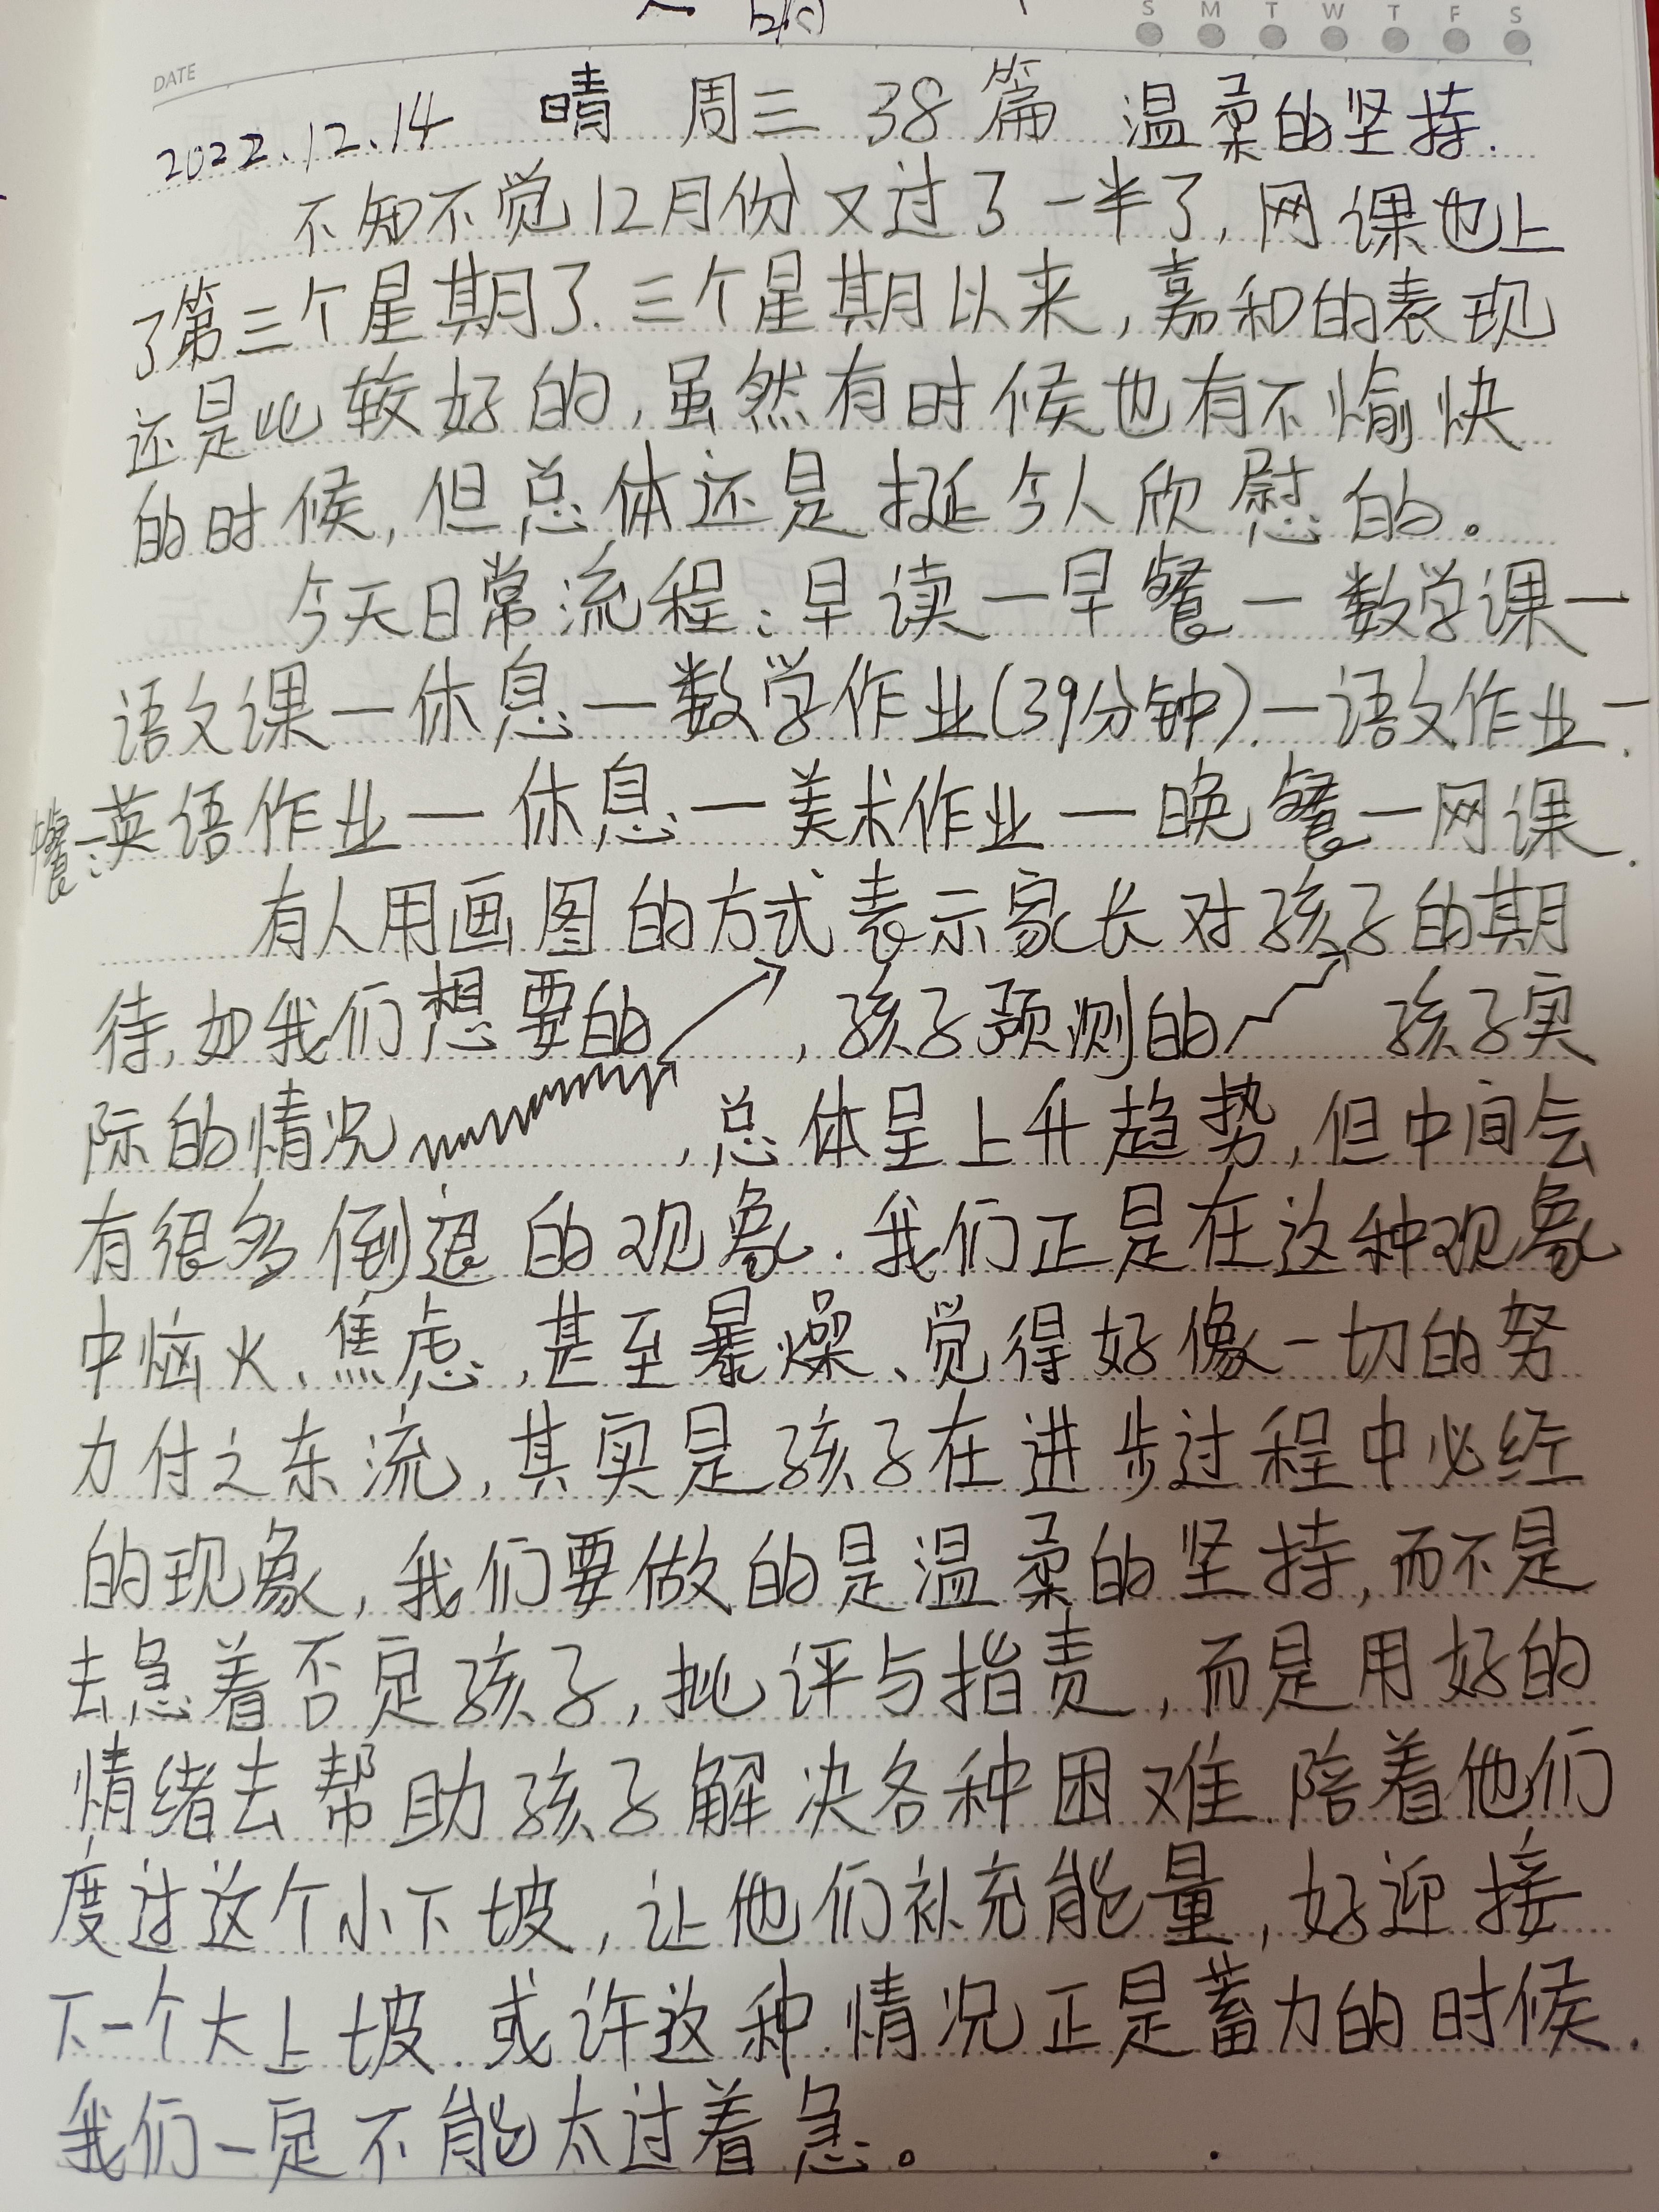 S M T W T F S
DATE
2022.12.14 晴 周三 38篇 温柔的坚持.
不知不觉12月份又过了一半了,网课也上
了第三个星期了.三个星期以来,嘉和的表现
还是比较好的,虽然有时候也有不愉快
的时候,但总体还是挺令人欣慰的。
今天日常流程:早读一早餐一数学课一
语文课一休息一数学作业(39分钟).一语文作业一
英语作业一休息一美术作业一晚餐一网课.
有人用画图的方式表示家长对孩子的期
待,如我们想要的 ,孩子预测的 孩子实
际的情况 ,总体呈上升趋势,但中间会
有很多倒退的现象.我们正是在这种现象
中恼火、焦虑,甚至暴燥、觉得好像一切的努
力付之东流,其实是孩子在进步过程中必经
的现象,我们要做的是温柔的坚持,而不是
去急着否定孩子,批评与指责,而是用好的
情绪去帮助孩子解决各种困难.陪着他们
度过这个小下坡,让他们补充能量,好迎接
下一个大上坡.或许这种情况正是蓄力的时候.
我们一定不能太过着急。